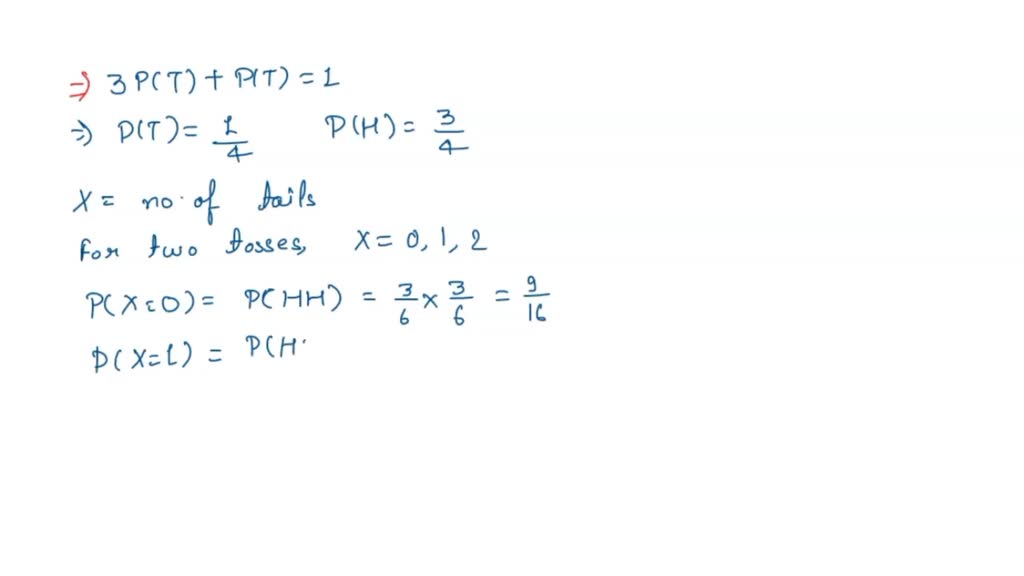 ⇒ 3P(T) + P(T) = 1
⇒ P(T) = 1/4 P(H) = 3/4
X = no. of tails
For two tosses, X = 0, 1, 2
P(X=0) = P(HH) = 3/6 × 3/6 = 9/16
P(X=1) = P(H